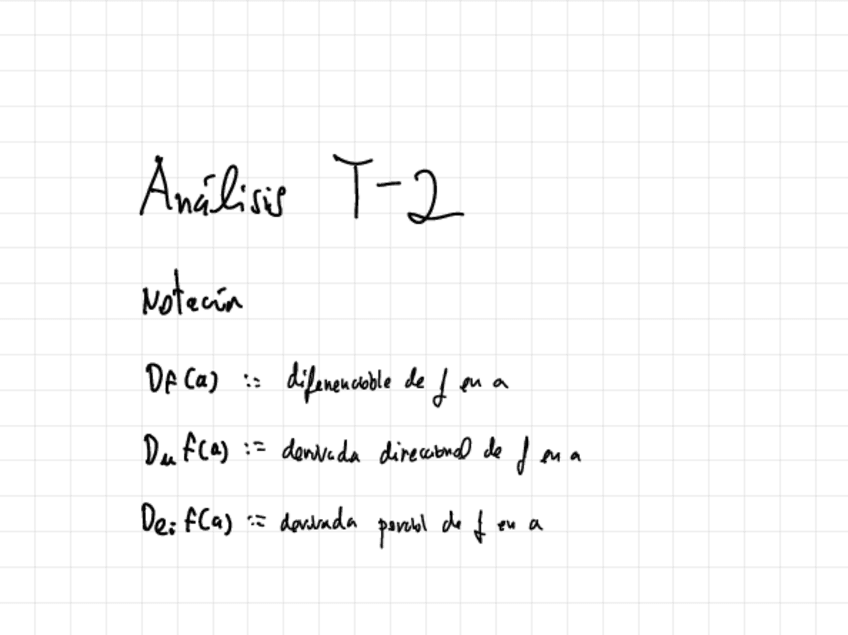 Análisis T-2
Notación
Df(a) := diferenciable de f en a
Duf(a) := derivada direccional de f en a
Deif(a) := derivada parcial de f en a